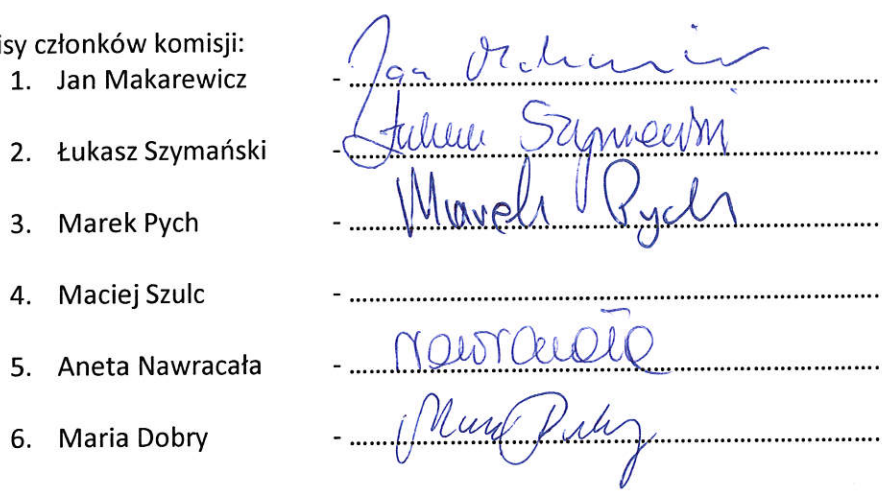 isy członków komisji:
1. Jan Makarewicz - Jan
2. Łukasz Szymański - Łukasz Szymański
3. Marek Pych - Marek Pych
4. Maciej Szulc -
5. Aneta Nawracała - Nawracała
6. Maria Dobry -